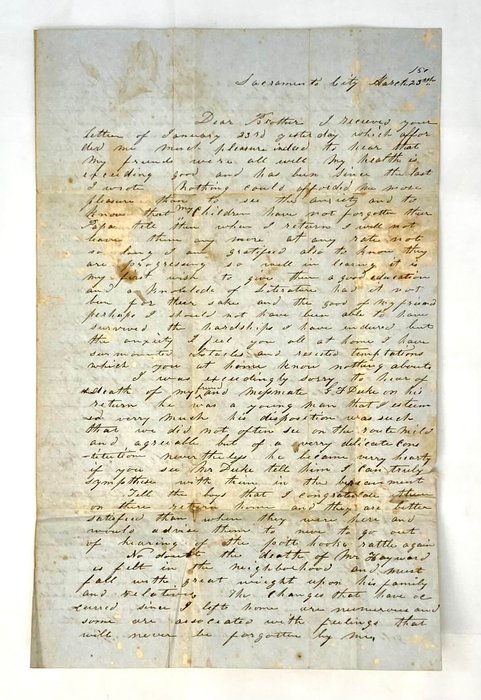 Sacramento City March 23rd
Dear Brother I recieved your
letter of January 23rd yesterday which affor
ded me much pleasure indeed to hear that
my friends were all well My health is
exceeding good and has been since the last
I wrote Nothing could afforded me more
pleasure than to see this anxiety and to
know that my Children have not forgotten their
Papa tell them when I return I will not
leave them any more at any rate not
so long I am gratified also to know they
are progressing so well in learning it is
my first wish to give them a good education
and a knoledg of Literature had it not
been for their sake and the good of my friend
perhaps I should not have been able to have
survived the hardships I have indured but
the anxiety I feel you all at home I have
surmounted obstacles and resisted temptations
which you at home know nothing about
I was exceedingly sorry to hear of
death of my friend and messmate Duke on his
return he was a young man that I esteem
ed very much his disposition was such
that we did not often see on the route mild
and agreeable but of a verry delicate Cons
titution nevertheless he became very hearty
if you see Mr Duke tell him I can truly
sympthise with them in the
Tell the boys that I congratulate them
on there return home and they are better
satisfied than when they were here and
would advise them to never to go out
of hearing of the pott hooks rattle again
No doubt the death of Mr Hayward
is felt in the neighborhood and must
fall with great weight upon his family
and Relations The Changes that have oc
cured since I left home are numerous and
some are associated with feelings that
will never be forgotten by me